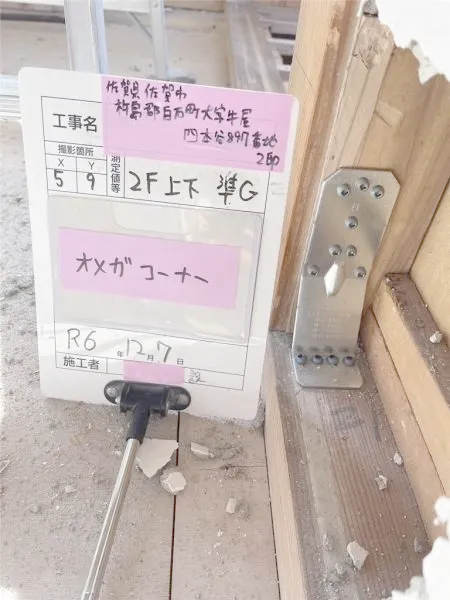 工事名
佐賀県佐賀市
杵島郡白石町大字牛屋
四本谷897番地
2邸
撮影箇所
測定値等
X Y
5 9
2F上下 準G
オメガコーナー
R6年12月7日
施工者
設